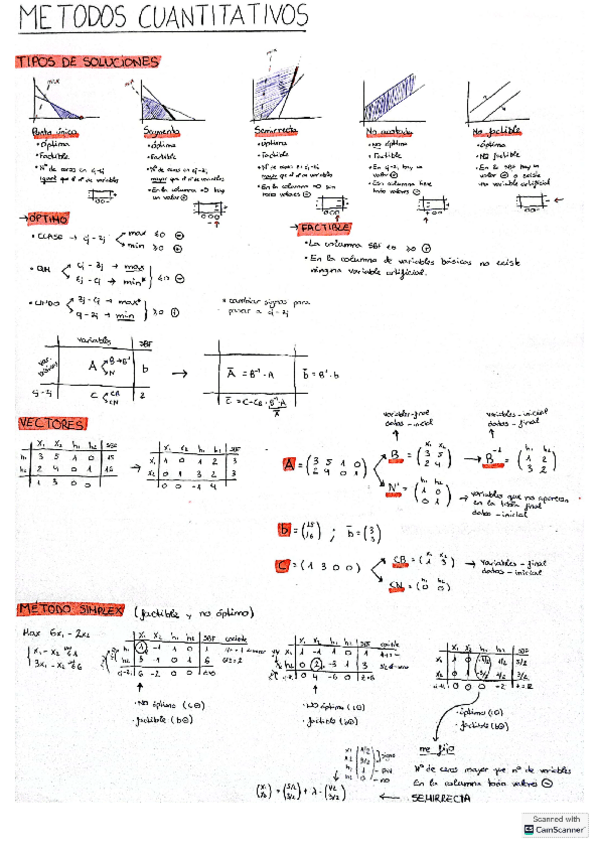 METODOS CUANTITATIVOS
TIPOS DE SOLUCIONES
Punto único
• Óptima
• Factible
• Nº de ceros en cj-zj
igual que nº de variables
Segmento
• Óptima
• Factible
• Nº de ceros en cj-zj
mayor que nº de variables
• En la columna hay
un valor ⊕
Semirrecta
• Óptima
• Factible
• Nº de ceros en cj-zj
mayor que nº de variables
• En la columna
valores ⊖
No acotada
• No óptima
• Factible
• En cj-zj hay un
valor ⊕
• Esa columna tiene
todo valores ⊖
No factible
• Óptima
• NO factible
• En la SBF hay un
valor ⊖ o existe
una variable artificial
→ ÓPTIMO
• CLASE → cj - zj
max ≤0 ⊖
min ≥0 ⊕
cj - zj → max
zj - cj → min*
≤0 ⊖
• LINDO
zj - cj → max*
cj - zj → min
≥0 ⊕
* cambiar signos para
pasar a cj - zj
→ FACTIBLE
• La columna SBF es ≥0 ⊕
• En la columna de variables básicas no existe
ninguna variable artificial.
variables SBF
var. básicas
A B → B⁻¹ N b
cj - zj C CB CN z
Ā = B⁻¹ · A b̄ = B⁻¹ · b
c̄ = C - CB · B⁻¹ · A
VECTORES
X₁ X₂ h₁ h₂ SBF
h₁ 3 5 1 0 15
h₂ 2 4 0 1 16
1 3 0 0
X₁ X₂ h₁ h₂ SBF
X₁ 1 0 1 2 3
X₂ 0 1 3 2 3
0 0 -1 4
variables-final
datos-inicial
variables-inicial
datos-final
A = (3 5 1 0
2 4 0 1)
B = (3 5
2 4)
B⁻¹ = (1 2
3 2)
N = (1 0
0 1)
→ variables que no aparecen
en la tabla final
datos-inicial
b = (15
16) ; b̄ = (3
3)
C = (1 3 0 0)
CB = (1 3) → variables-final
datos-inicial
CN = (0 0)
MÉTODO SIMPLEX (factible y no óptimo)
Max 6x₁ - 2x₂
x₁ - x₂ ≤ 1
3x₁ - x₂ ≤ 6
X₁ X₂ h₁ h₂ SBF
h₁ 1 -1 1 0 1
h₂ 3 -1 0 1 6
cj-zj 6 -2 0 0 z=0
• NO óptima
• factible
X₁ X₂ h₁ h₂ SBF
X₁ 1 -1 1 0 1
h₂ 0 2 -3 1 3
cj-zj 0 4 -6 0
• NO óptima
• factible
X₁ X₂ h₁ h₂ SBF
X₁ 1 0 -1/2 1/2 5/2
X₂ 0 1 -3/2 1/2 3/2
cj-zj 0 0 0 -2
• óptima
• factible
me fijo
Nº de ceros mayor que nº de variables
En la columna todo valores ⊖
← SEMIRRECTA
Scanned with
CamScanner